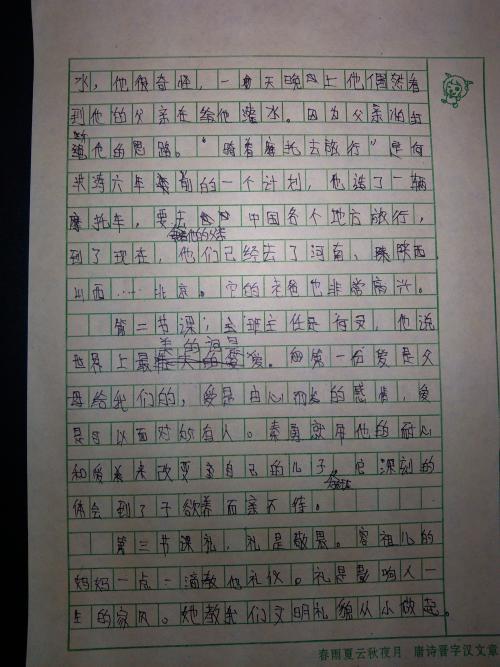 水，他很奇怪，一天晚上他偶然看
到他的父亲在给他灌水。因为父亲怕打
断他的思路。"骑着摩托去旅行"是何
洪涛六年前的一个计划，他造了一辆
摩托车，要去中国各个地方旅行，
到了现在，他们已经去了河南、陕西
山西……北京。它的老爸也非常高兴。
第二节课；主班主任是荷又，他说
世界上最美的词是爱。每第一份爱是父
母给我们的，爱是由心而发的感情，爱
是可以面对所有人。索勇就用他的耐心
和爱来改变着自己的儿子。也深刻的
体会到了子欲养而亲不待。
第三节课礼，礼是敬畏。容祖儿的
妈妈一点一滴教他礼仪。礼是影响人一
生的家风。她教我们文明礼貌从小做起。
春雨夏云秋夜月 唐诗晋字汉文章